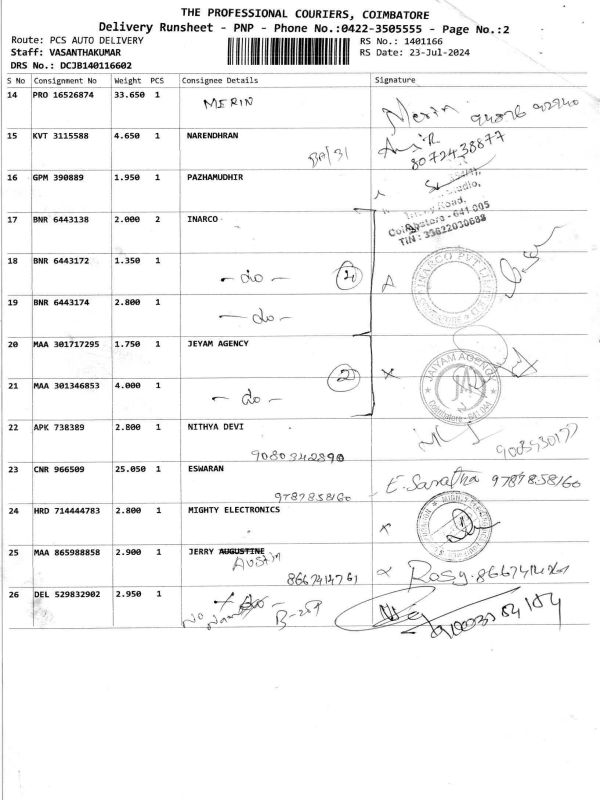 THE PROFESSIONAL COURIERS, COIMBATORE
Delivery Runsheet - PNP - Phone No.:0422-3505555 - Page No.:2
Route: PCS AUTO DELIVERY
RS No.: 1401166
Staff: VASANTHAKUMAR
RS Date: 23-Jul-2024
DRS No.: DCJB140116602
S No Consignment No Weight PCS Consignee Details Signature
14 PRO 16526874 33.650 1 MERIN Merin
15 KVT 3115588 4.650 1 NARENDHRAN 8072438877
BA/31
16 GPM 390889 1.950 1 PAZHAMUDHIR
Coimbatore - 641 005
TIN : 33822030688
17 BNR 6443138 2.000 2 INARCO
18 BNR 6443172 1.350 1 - do - 4 INARCO PVT LIMITED
19 BNR 6443174 2.800 1 - do -
20 MAA 301717295 1.750 1 JEYAM AGENCY
21 MAA 301346853 4.000 1 - do - 2 JAIYAM AGENCY
22 APK 738389 2.800 1 NITHYA DEVI
9080342890
23 CNR 966509 25.050 1 ESWARAN E. Saratha 9787858160
9787858160
24 HRD 714444783 2.800 1 MIGHTY ELECTRONICS
25 MAA 865988858 2.900 1 JERRY AUGUSTINE
AUSTIN
8667414761 Rosy. 8667414761
26 DEL 529832902 2.950 1 - do -
No Name